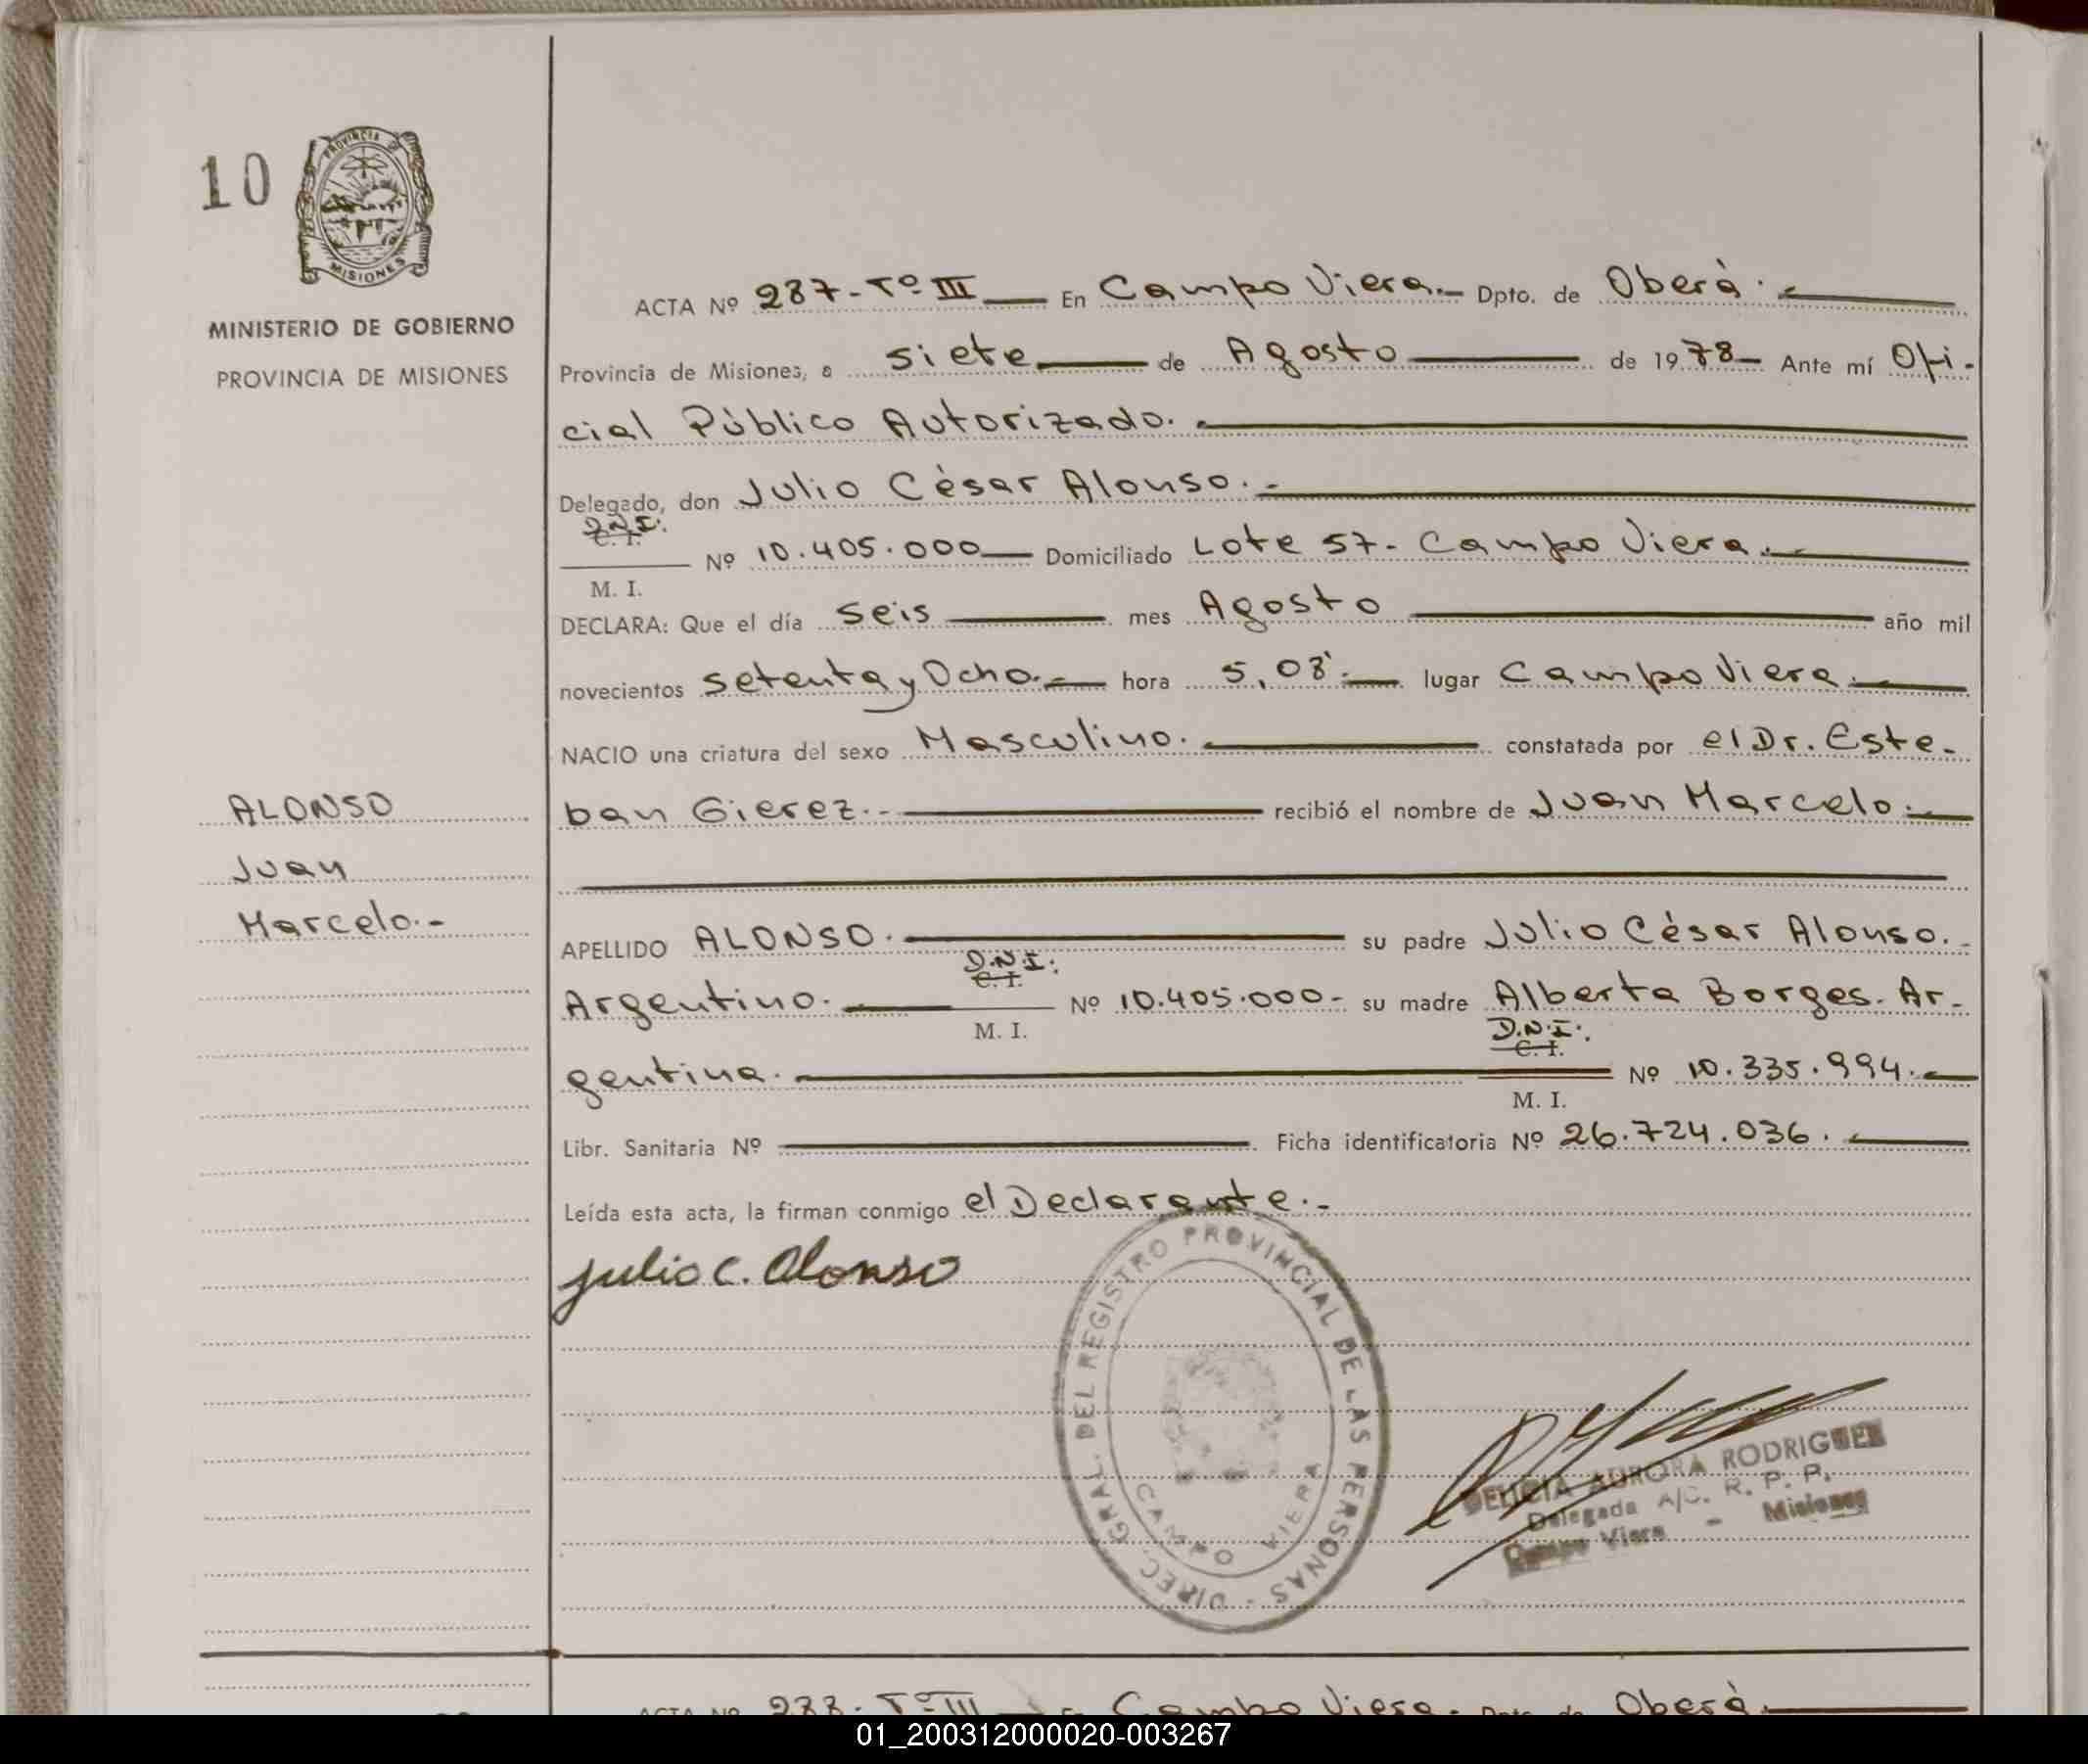 10
PROVINCIA DE
MISIONES
MINISTERIO DE GOBIERNO
PROVINCIA DE MISIONES
ALONSO
Juan
Marcelo.-
ACTA Nº 287-Tº III — En Campo Viera.- Dpto. de Oberà.-
Provincia de Misiones, a siete — de Agosto — de 1978- Ante mí Ofi-
cial Público Autorizado.-
Delegado, don Julio Cèsar Alonso.-
D.N.I.
C. I.
Nº 10.405.000 — Domiciliado Lote 57- Campo Viera.-
M. I.
DECLARA: Que el día seis — mes Agosto — año mil
novecientos setenta y Ocho.- hora 5,08'.- lugar Campo Viera.-
NACIO una criatura del sexo Masculino.- constatada por el Dr. Este-
ban Gierez.- recibió el nombre de Juan Marcelo.-
APELLIDO ALONSO.- su padre Julio Cèsar Alonso.-
D.N.I.
C. I.
Argentino.- Nº 10.405.000- su madre Alberta Borges. Ar-
M. I.
D.N.I.
C. I.
gentina.- Nº 10.335.994.-
M. I.
Libr. Sanitaria Nº — Ficha identificatoria Nº 26.724.036.-
Leída esta acta, la firman conmigo el Declarante.-
Julio C. Alonso
DIREC. GRAL. DEL REGISTRO PROVINCIAL DE LAS PERSONAS -
CAMPO VIERA
DELICIA AURORA RODRIGUEZ
Delegada A/C. R. P. P.
Campo Viera - Misiones
ACTA Nº 288- Tº III — En Campo Viera.- Dpto. de Oberà.-
01_200312000020-003267